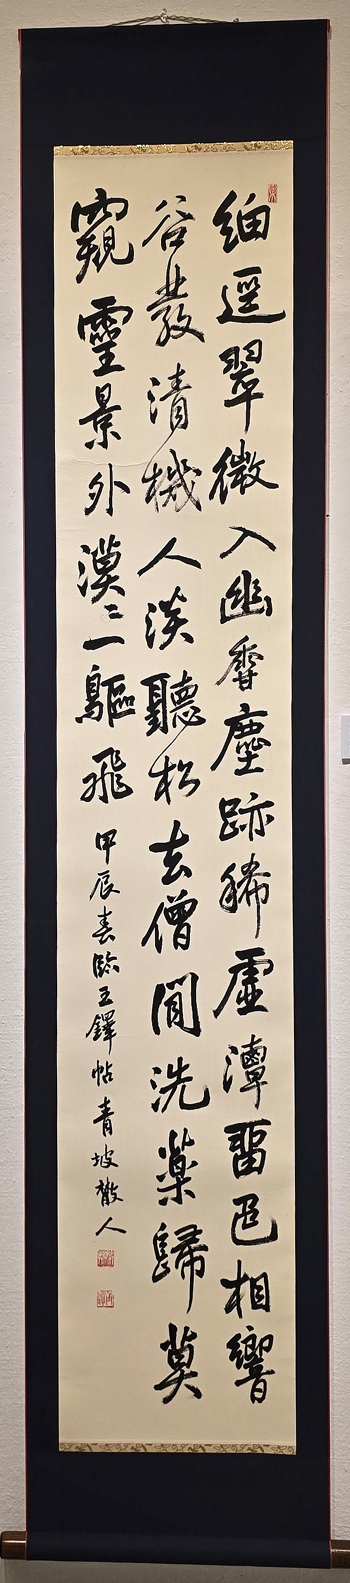 細逕翠微入幽香塵跡稀虛潭畱色相響
谷發清機人淡聽松去僧閒洗藥歸莫
窺靈景外漠〻一鷗飛 甲辰春臨王鐸帖 青坡散人